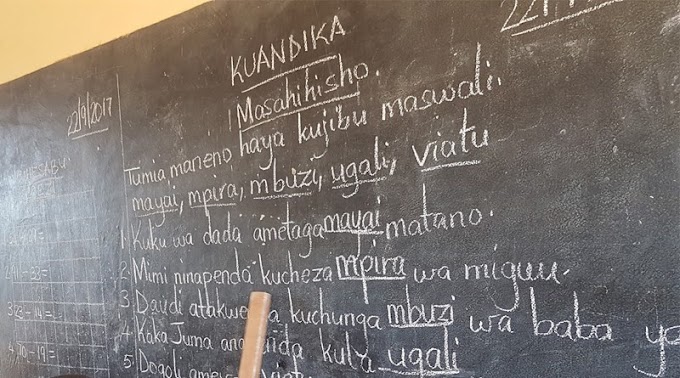 KUANDIKA
Masahihisho.
Tumia maneno haya kujibu maswali.
mayai, mpira, mbuzi, ugali, viatu
1. Kuku wa dada ametaga mayai matano.
2. Mimi ninapenda kucheza mpira wa miguu.
3. Daudi kuchunga mbuzi wa baba
4. Kaka Juma kula ugali
5. Dogoli viatu
22/9/2017
3. 23 - 14 =
- 19 =